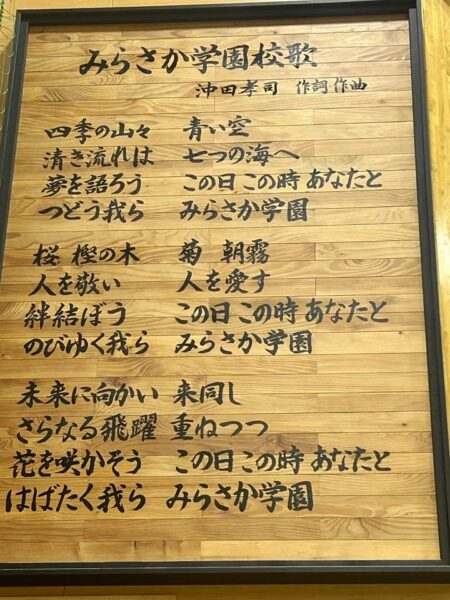 みらさか学園校歌
沖田孝司 作詞作曲
四季の山々 青い空
清き流れは 七つの海へ
夢を語ろう この日この時あなたと
つどう我ら みらさか学園
桜 樫の木 菊 朝霧
人を敬い 人を愛す
絆結ぼう この日この時あなたと
のびゆく我ら みらさか学園
未来に向かい 来同し
さらなる飛躍 重ねつつ
花を咲かそう この日この時あなたと
はばたく我ら みらさか学園